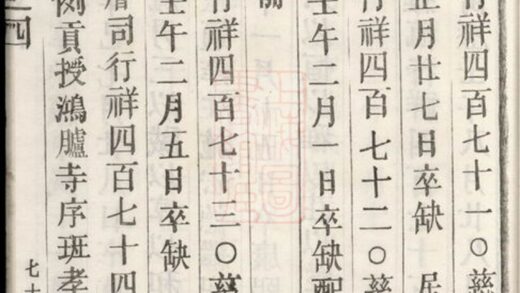 行祥四百七十一○慈
正月廿七日卒缺
行祥四百七十二○慈
壬午二月一日卒缺配
行祥四百七十三○慈
壬午二月五日卒缺
司行祥四百七十四
例貢授鴻臚寺序班孝
之四 七十